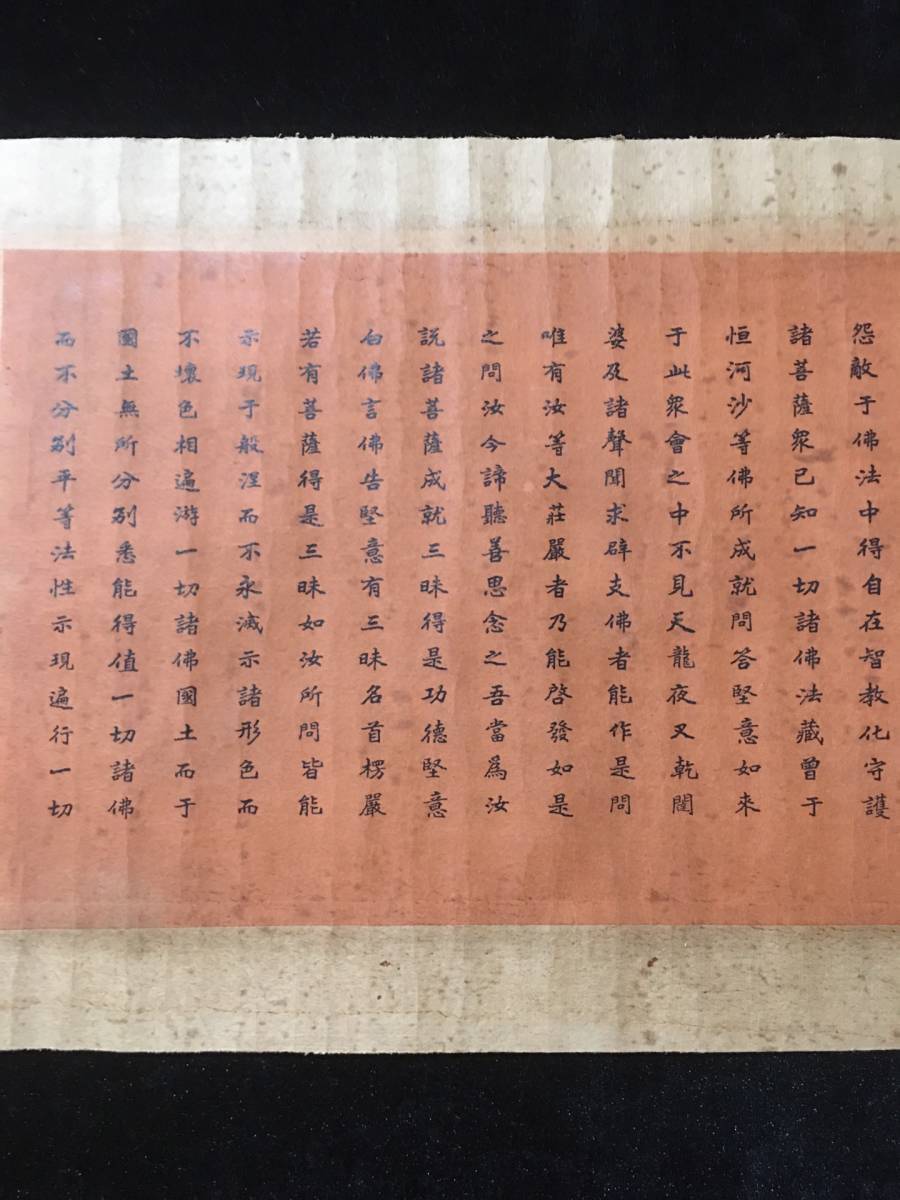 怨敵于佛法中得自在智教化守護
諸菩薩眾已知一切諸佛法藏曾于
恒河沙等佛所成就問答堅意如來
于此眾會之中不見天龍夜叉乾闥
婆及諸聲聞求辟支佛者能作是問
唯有汝等大莊嚴者乃能啓發如是
之問汝今諦聽善思念之吾當為汝
說諸菩薩成就三昧得是功德堅意
白佛言佛告堅意有三昧名首楞嚴
若有菩薩得是三昧如汝所問皆能
示現于般涅而不永滅示諸形色而
不壞色相遍游一切諸佛國土而于
國土無所分別悉能得值一切諸佛
而不分別平等法性示現遍行一切